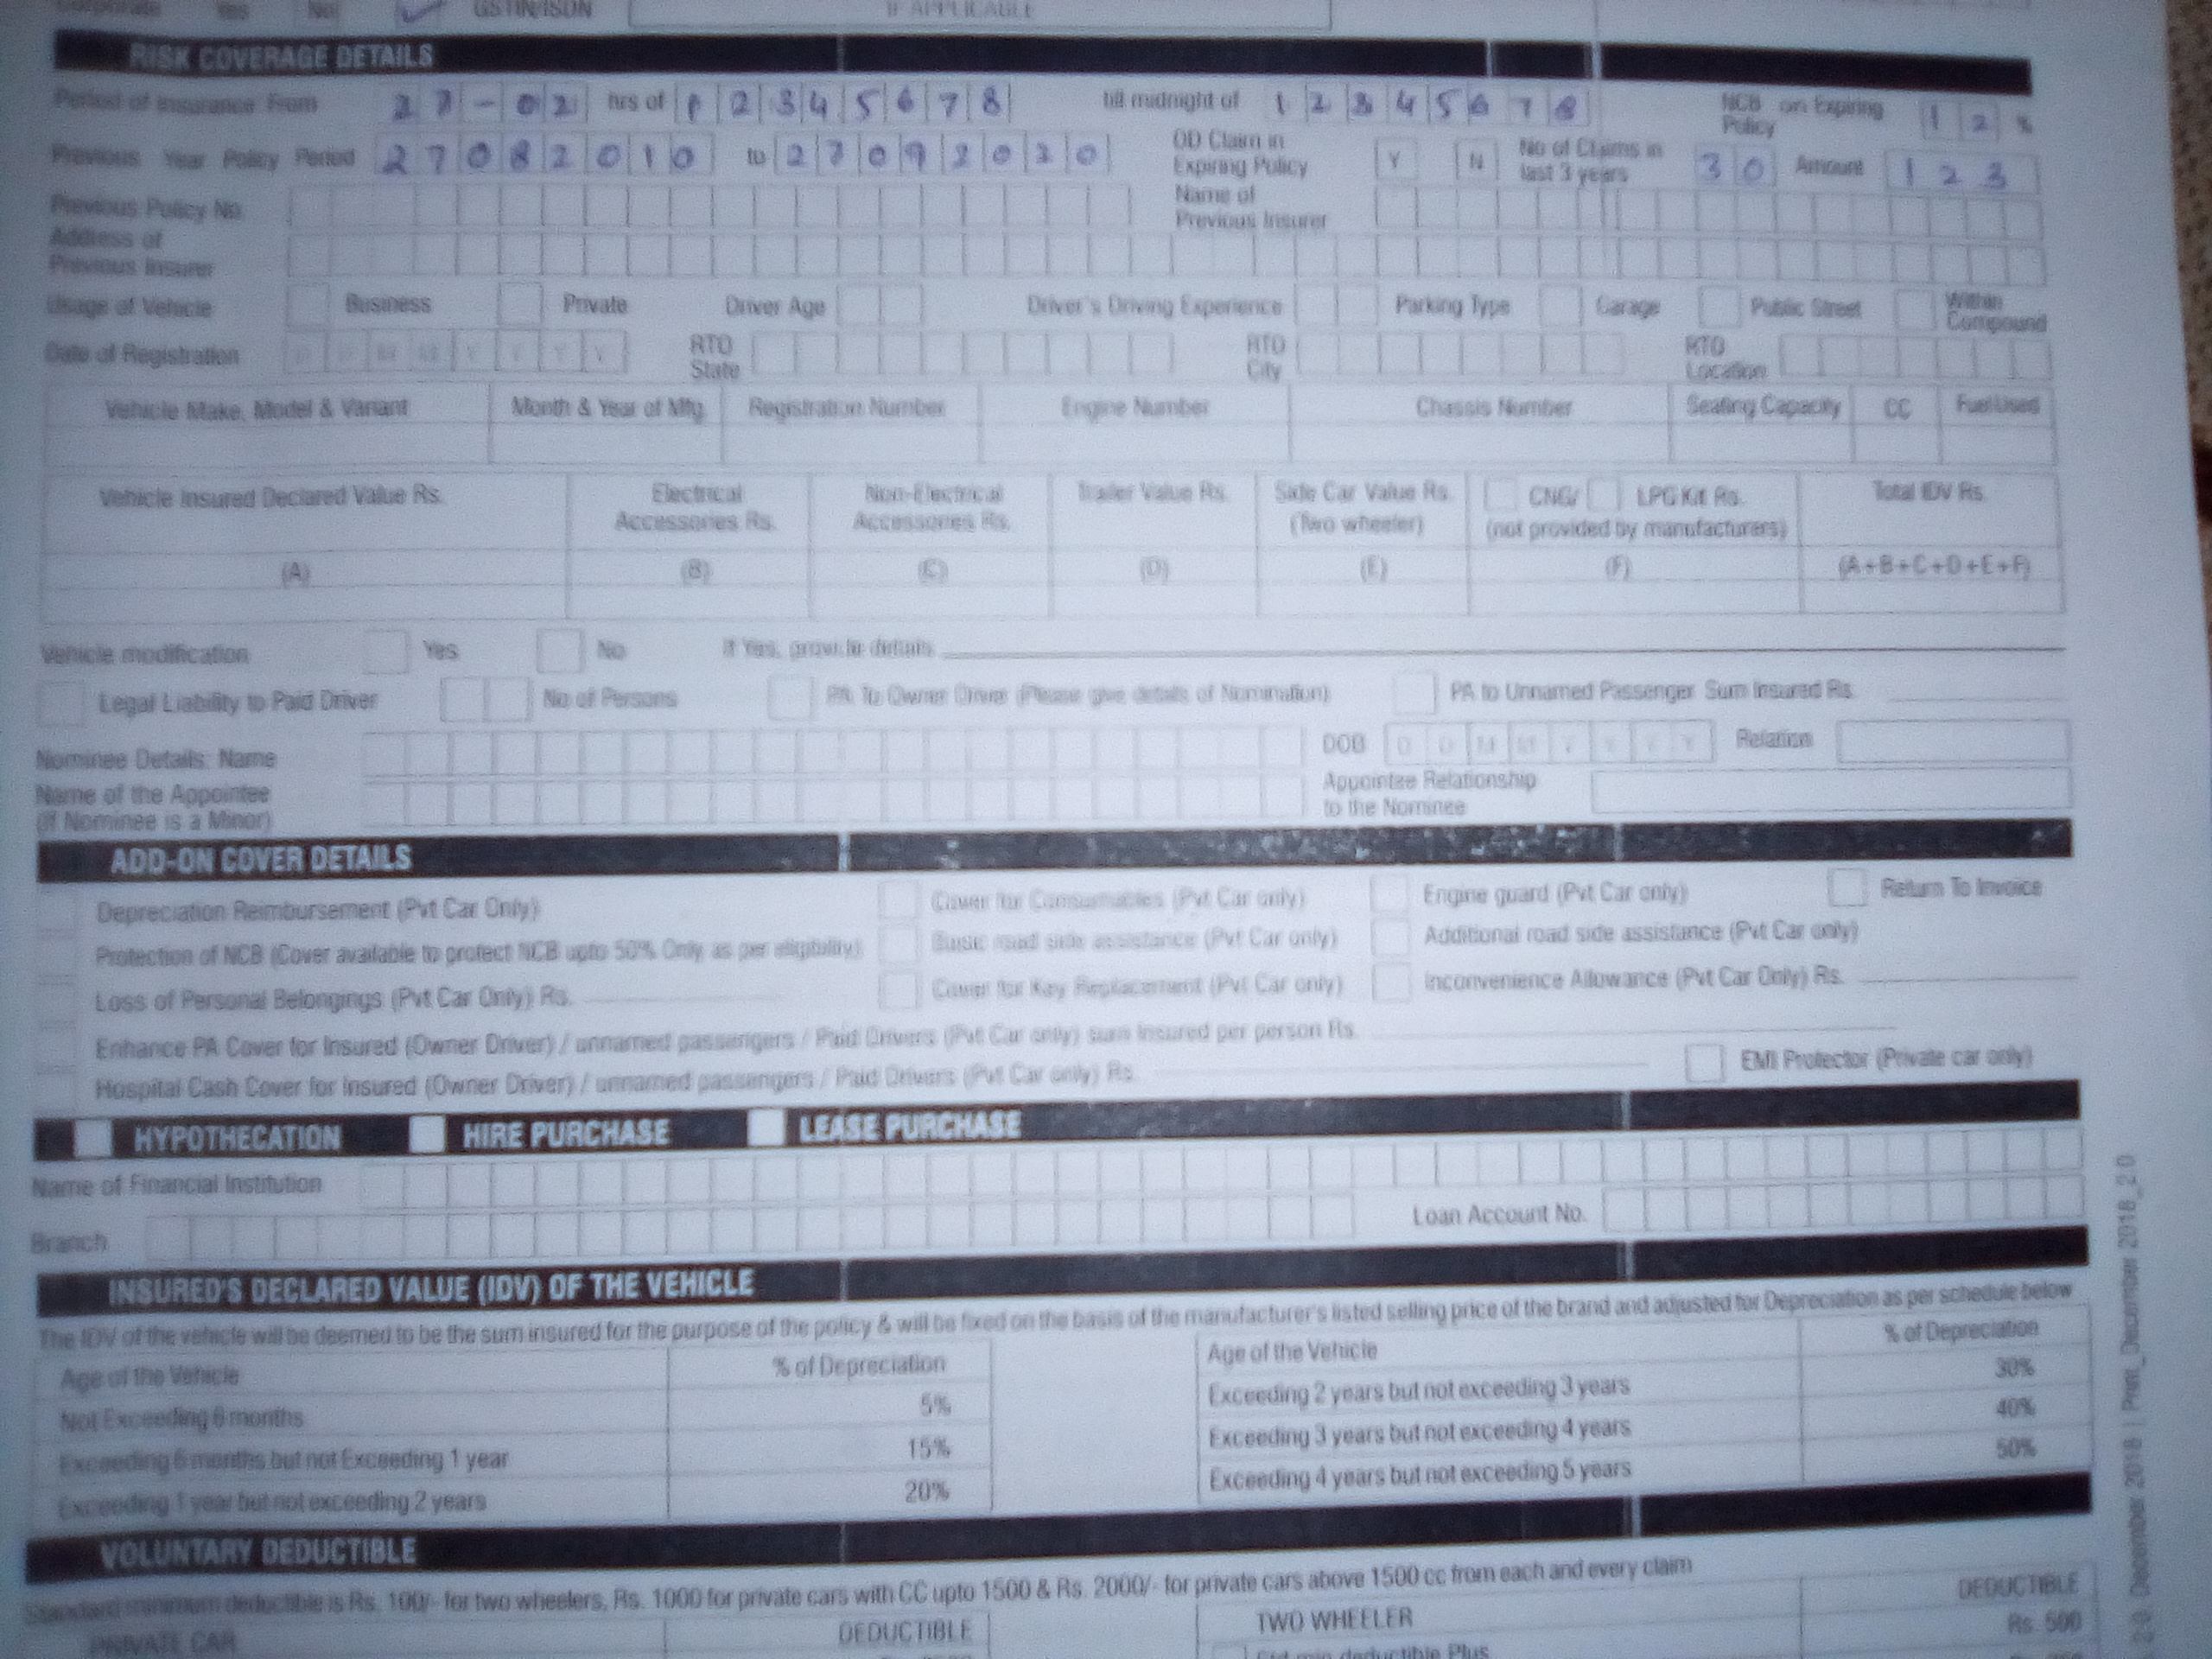 Corporate Yes No GSTIN/ISDN IF APPLICABLE
RISK COVERAGE DETAILS
Period of Insurance From 27-02 hrs of 12345678 till midnight of 12345678 NCB on Expiring Policy 12 %
Previous Year Policy Period 27082010 to 27092020 OD Claim in Expiring Policy Y N No of Claims in last 3 years 30 Amount 123
Previous Policy No. Name of Previous Insurer
Address of Previous Insurer
Usage of Vehicle Business Private Driver Age Driver's Driving Experience Parking Type Garage Public Street Within Compound
Date of Registration D D M M Y Y Y Y RTO State RTO City RTO Location
Vehicle Make, Model & Variant Month & Year of Mfg. Registration Number Engine Number Chassis Number Seating Capacity CC Fuel Used
Vehicle Insured Declared Value Rs. Electrical Accessories Rs. Non-Electrical Accessories Rs. Trailer Value Rs. Side Car Value Rs. (Two wheeler) CNG/ LPG Kit Rs. (not provided by manufacturers) Total IDV Rs.
(A) (B) (C) (D) (E) (F) (A+B+C+D+E+F)
Vehicle modification Yes No If Yes, provide details
Legal Liability to Paid Driver No of Persons PA To Owner Driver (Please give details of Nomination) PA to Unnamed Passenger Sum Insured Rs.
Nominee Details: Name DOB D D M M Y Y Y Y Relation
Name of the Appointee (If Nominee is a Minor) Appointee Relationship to the Nominee
ADD-ON COVER DETAILS
Depreciation Reimbursement (Pvt Car Only) Cover for Consumables (Pvt Car only) Engine guard (Pvt Car only) Return To Invoice
Protection of NCB (Cover available to protect NCB upto 50% Only as per eligibility) Basic road side assistance (Pvt Car only) Additional road side assistance (Pvt Car only)
Loss of Personal Belongings (Pvt Car Only) Rs. Cover for Key Replacement (Pvt Car only) Inconvenience Allowance (Pvt Car Only) Rs.
Enhance PA Cover for Insured (Owner Driver) / unnamed passengers / Paid Drivers (Pvt Car only) sum insured per person Rs.
Hospital Cash Cover for Insured (Owner Driver) / unnamed passengers / Paid Drivers (Pvt Car only) Rs. EMI Protector (Private car only)
HYPOTHECATION HIRE PURCHASE LEASE PURCHASE
Name of Financial Institution
Branch Loan Account No.
INSURED'S DECLARED VALUE (IDV) OF THE VEHICLE
The IDV of the vehicle will be deemed to be the sum insured for the purpose of the policy & will be fixed on the basis of the manufacturer's listed selling price of the brand and adjusted for Depreciation as per schedule below
Age of the Vehicle % of Depreciation Age of the Vehicle % of Depreciation
Not Exceeding 6 months 5% Exceeding 2 years but not exceeding 3 years 30%
Exceeding 6 months but not Exceeding 1 year 15% Exceeding 3 years but not exceeding 4 years 40%
Exceeding 1 year but not exceeding 2 years 20% Exceeding 4 years but not exceeding 5 years 50%
VOLUNTARY DEDUCTIBLE
Standard minimum deductible is Rs. 100/- for two wheelers, Rs. 1000 for private cars with CC upto 1500 & Rs. 2000/- for private cars above 1500 cc from each and every claim
PRIVATE CAR DEDUCTIBLE TWO WHEELER DEDUCTIBLE
Std min deductible Plus Rs. 500
December 2018 | Print_December 2018_2.0